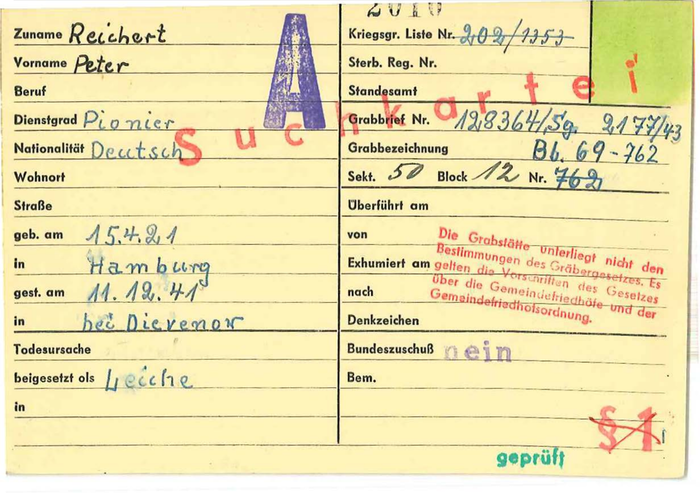 2010
Zuname Reichert
Vorname Peter
Beruf
Dienstgrad Pionier
Nationalität Deutsch
Wohnort
Straße
geb. am 15.4.21
in Hamburg
gest. am 11.12.41
in bei Dievenow
Todesursache
beigesetzt als Leiche
in
A
Suchkartei
Kriegsgr. Liste Nr. 202/1353
Sterb. Reg. Nr.
Standesamt
Grabbrief Nr. 128364/Sg. 2177/43
Grabbezeichnung Bb. 69-762
Sekt. 50 Block 12 Nr. 762
Überführt am
von
Exhumiert am
nach
Denkzeichen
Die Grabstätte unterliegt nicht den
Bestimmungen des Gräbergesetzes. Es
gelten die Vorschriften des Gesetzes
über die Gemeindefriedhöfe und der
Gemeindefriedhofsordnung.
Bundeszuschuß nein
Bem.
§ 1
geprüft